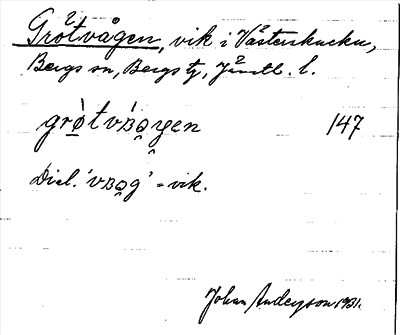 Grötvågen, vik i Västerkucku,
Bergs sn, Bergs tg, Jämtl. l.
grötvʙo̯gen 147
Dial. 'vʙo̯g' = vik.
Johan Anderson 1931.